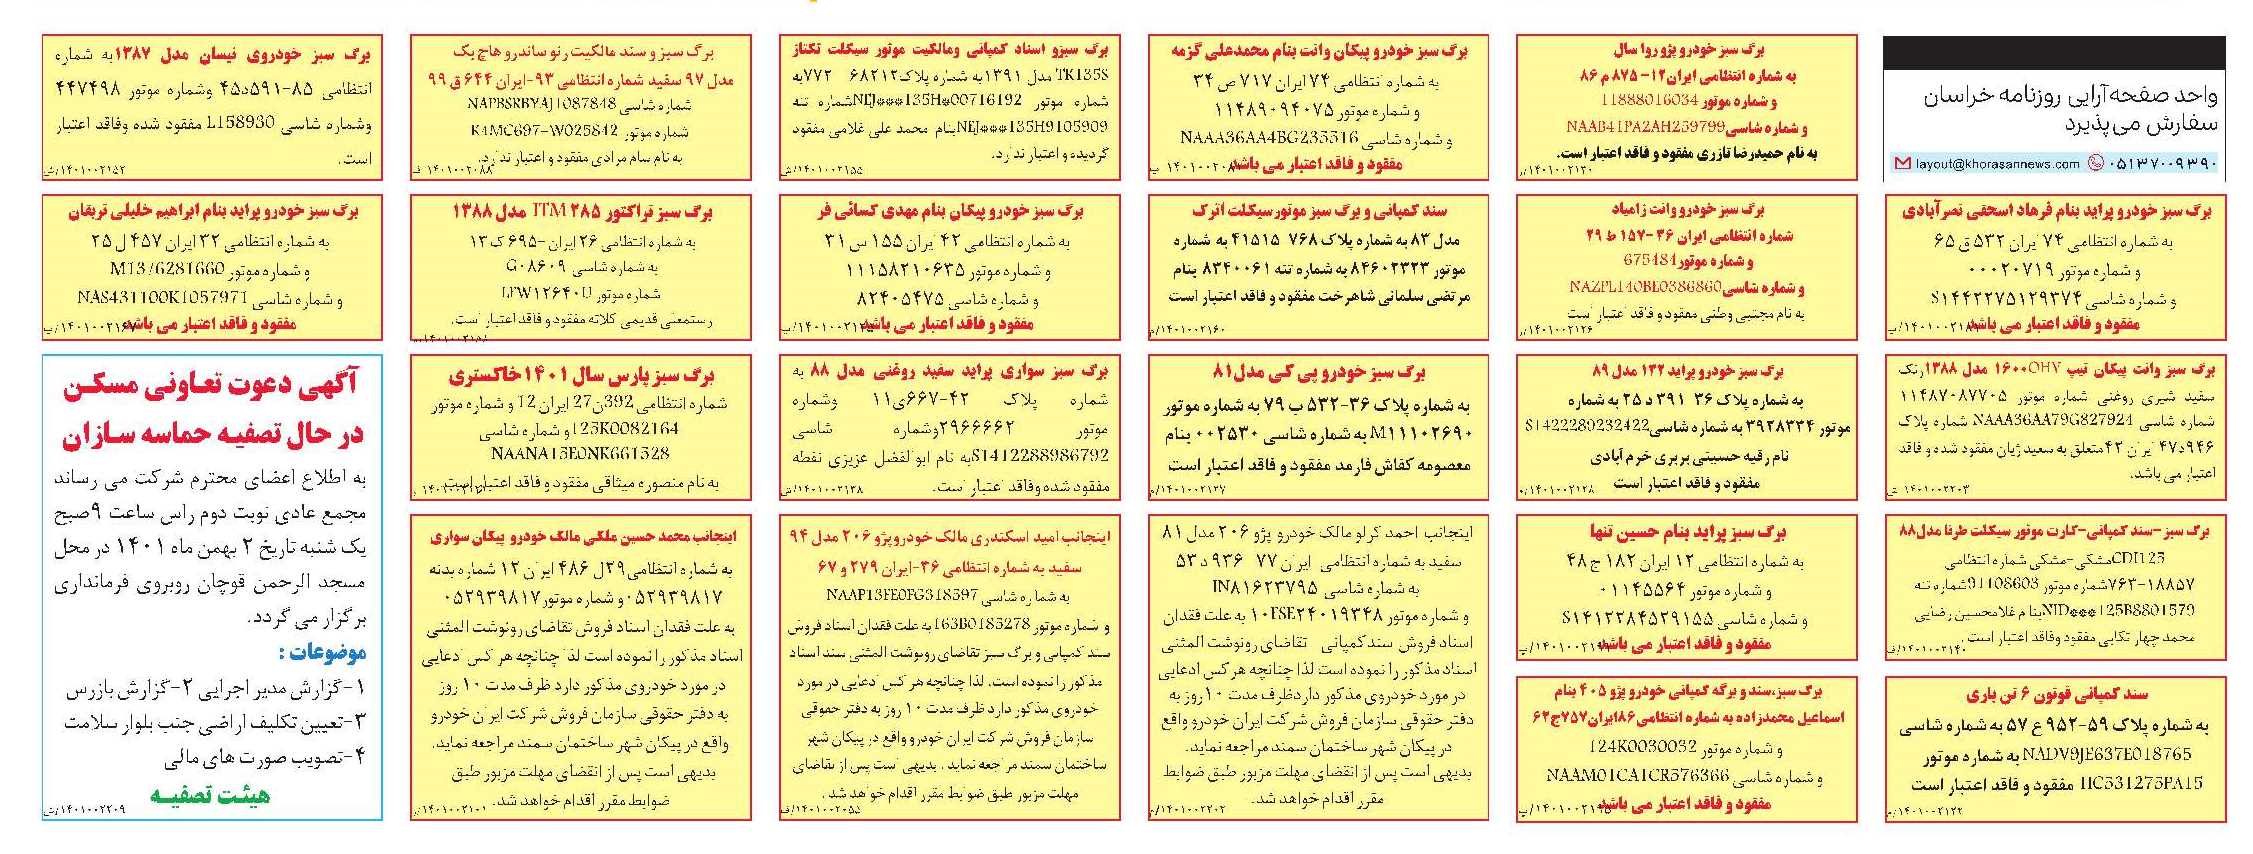 واحد صفحه‌آرایی روزنامه خراسان
سفارش می‌پذیرد
layout@khorasannews.com ۰۵۱۳۷۰۰۹۳۹۰
برگ سبز خودرو پراید بنام فرهاد اسحقی نصرآبادی
به شماره انتظامی ۷۴ ایران ۵۳۲ ق ۶۵
و شماره موتور ۰۰۰۲۰۷۱۹
و شماره شاسی S۱۴۴۲۲۷۵۱۲۹۳۷۴
مفقود و فاقد اعتبار می باشد
برگ سبز وانت پیکان تیپ ۱۶۰۰OHV مدل ۱۳۸۸رنگ
سفید شیری روغنی شماره موتور ۱۱۴۸۷۰۸۷۷۰۵
شماره شاسی NAAA36AA79G827924 شماره پلاک
۹۴۶د۴۷ ایران ۴۲متعلق به سعید ژیان مفقود شده و فاقد
اعتبار می باشد.
۱۴۰۱۰۰۲۲۰۳
برگ سبز-سند کمپانی-کارت موتور سیکلت طرفا مدل۸۸
CDI125مشکی-مشکی شماره انتظامی
۷۶۳-۱۸۸۵۷شماره موتور 91108603شماره تنه
NJD***125B8801579بنام غلامحسین رضایی
محمد چهار تکابی مفقود وفاقد اعتبار است .
سند کمپانی فوتون ۶ تن باری
به شماره پلاک ۵۹-۹۵۲ ع ۵۷ به شماره شاسی
NADV9JE637E018765 به شماره موتور
HC531275PA15 مفقود و فاقد اعتبار است
۱۴۰۱۰۰۲۱۲۲/م
برگ سبز خودرو پژو روا سال
به شماره انتظامی ایران۱۲- ۸۷۵ م ۸۶
و شماره موتور 11888016034
و شماره شاسیNAAB41PA2AH259799
به نام حمیدرضا تازری مفقود و فاقد اعتبار است.
برگ سبز خودرو وانت زامیاد
شماره انتظامی ایران ۳۶ -۱۵۷ ط ۲۹
و شماره موتور675484
و شماره شاسیNAZPL140BE0386860
به نام مجتبی وطنی مفقود و فاقد اعتبار است
۱۴۰۱۰۰۲۱۲۶
برگ سبز خودرو پراید ۱۳۲ مدل ۸۹
به شماره پلاک ۳۶ ۳۹۱ د ۲۵ به شماره
موتور ۳۹۲۸۳۳۴ به شماره شاسیS1422289232422
نام رقیه حسیتی بربری خرم آبادی
مفقود و فاقد اعتبار است
۱۴۰۱۰۰۲۱۲۸
برگ سبز پراید بنام حسین تنها
به شماره انتظامی ۱۲ ایران ۱۸۲ ج ۴۸
و شماره موتور ۰۱۱۴۵۵۶۴
و شماره شاسی S۱۴۱۲۲۸۴۵۲۹۱۵۵
مفقود و فاقد اعتبار می باشد
برگ سبز،سند و برگه کمپانی خودرو پژو ۴۰۵ بنام
اسماعیل محمدزاده به شماره انتظامی۸۶ایران۷۵۷ج۶۲
و شماره موتور 124K0030032
و شماره شاسی NAAM01CA1CR576366
مفقود و فاقد اعتبار می باشد
برگ سبز خودرو پیکان وانت بنام محمدعلی گزمه
به شماره انتظامی ۷۴ ایران ۷۱۷ ص ۳۴
و شماره موتور ۱۱۴۸۹۰۹۴۰۷۵
و شماره شاسی NAAA36AA4BG235516
مفقود و فاقد اعتبار می باشد
سند کمپانی و برگ سبز موتورسیکلت اترک
مدل ۸۳ به شماره پلاک ۷۶۸ ۴۱۵۱۵ به شماره
موتور ۸۴۶۰۲۳۲۳ به شماره تنه ۸۳۴۰۰۶۱ بنام
مرتضی سلمانی شاهرخت مفقود و فاقد اعتبار است
۱۴۰۱۰۰۲۱۶۰/م
برگ سبز خودرو پی کی مدل۸۱
به شماره پلاک ۳۶-۵۳۲ ب ۷۹ به شماره موتور
M۱۱۱۰۲۶۹۰ به شماره شاسی ۰۰۲۵۳۰ بنام
معصومه کفاش فارمد مفقود و فاقد اعتبار است
۱۴۰۱۰۰۲۱۲۷/م
اینجانب احمد کرلو مالک خودرو پژو ۲۰۶ مدل ۸۱
سفید به شماره انتظامی ایران ۷۷ ۹۳۶ د ۵۳
به شماره شاسی IN۸۱۶۲۳۷۹۵
و شماره موتور ۱۰FSE۲۴۰۱۹۳۴۸ به علت فقدان
اسناد فروش سند کمپانی تقاضای رونوشت المثنی
اسناد مذکور را نموده است لذا چنانچه هر کس ادعایی
در مورد خودروی مذکور داردظرف مدت ۱۰روز به
دفتر حقوقی سازمان فروش شرکت ایران خودرو واقع
در پیکان شهر ساختمان سمند مراجعه نماید.
بدیهی است پس از انقضای مهلت مزبور طبق ضوابط
مقرر اقدام خواهد شد.
۱۴۰۱۰۰۲۲۰۲/م
برگ سبزو اسناد کمپانی ومالکیت موتور سیکلت تکتاز
TK135S مدل ۱۳۹۱به شماره پلاک۶۸۲۱۲ ۷۷۲به
شماره موتور NEJ***135H*00716192شماره تنه
NEJ***135H9105909بنام محمد علی غلامی مفقود
گردیده و اعتبار ندارد.
۱۴۰۱۰۰۲۱۵۵/ش
برگ سبز خودرو پیکان بنام مهدی کسائی فر
به شماره انتظامی ۴۲ ایران ۱۵۵ س ۳۱
و شماره موتور ۱۱۱۵۸۲۱۰۶۳۵
و شماره شاسی ۸۲۴۰۵۴۷۵
مفقود و فاقد اعتبار می باشد
برگ سبز سواری پراید سفید روغنی مدل ۸۸ به
شماره پلاک ۴۲-۶۶۷ی۱۱ وشماره
موتور ۲۹۶۶۶۶۲وشماره شاسی
S1412288986792به نام ابوالفضل عزیزی نقطه
مفقود شده وفاقد اعتبار است.
۱۴۰۱۰۰۲۱۳۸/ش
اینجانب امید اسکندری مالک خودروپژو ۲۰۶ مدل ۹۴
سفید به شماره انتظامی ۳۶-ایران ۲۷۹ و ۶۷
به شماره شاسی NAAP13FE0FG318597
و شماره موتور 163B0185278به علت فقدان اسناد فروش
سند کمپانی و برگ سبز تقاضای رونوشت المثنی سند اسناد
مذکور را نموده است. لذا چنانچه هر کس ادعایی در مورد
خودروی مذکور دارد ظرف مدت ۱۰ روز به دفتر حقوقی
سازمان فروش شرکت ایران خودرو واقع در پیکان شهر
ساختمان سمند مراجعه نماید . بدیهی است پس از تقاضای
مهلت مزبور طبق ضوابط مقرر اقدام خواهد شد .
۱۴۰۱۰۰۲۰۵۵/ف
برگ سبز و سند مالکیت رنو ساندرو هاچ بک
مدل ۹۷ سفید شماره انتظامی ۹۳-ایران ۶۴۴ ق ۹۹
شماره شاسی NAPBSRBYAJ1087848
شماره موتور K4MC697-W025842
به نام سام مرادی مفقود و اعتبار ندارد.
۱۴۰۱۰۰۲۰۸۸ ف
برگ سبز تراکتور ITM ۲۸۵ مدل ۱۳۸۸
شماره انتظامی ۲۶ ایران -۶۹۵ ک ۱۳
به شماره شاسی G۰۸۶۰۹
شماره موتور LFW۱۲۶۴۰U
رستمعلی قدیمی کلاته مفقود و فاقد اعتبار است.
برگ سبز پارس سال ۱۴۰۱خاکستری
شماره انتظامی 392ن27 ایران 12 و شماره موتور
125K0082164و شماره شاسی
NAANA15E0NK661328
به نام منصوره میثاقی مفقود و فاقد اعتبار است
اینجانب محمد حسین ملکی مالک خودرو پیکان سواری
به شماره انتظامی۳۹ل ۴۸۶ ایران ۱۲ شماره بدنه
۰۵۲۹۳۹۸۱۷ و شماره موتور۰۵۲۹۳۹۸۱۷
به علت فقدان اسناد فروش تقاضای رونوشت المثنی
اسناد مذکور را نموده است لذا چنانچه هر کس ادعایی
در مورد خودروی مذکور دارد ظرف مدت ۱۰ روز
به دفتر حقوقی سازمان فروش شرکت ایران خودرو
واقع در پیکان شهر ساختمان سمند مراجعه نماید.
بدیهی است پس از انقضای مهلت مزبور طبق
ضوابط مقرر اقدام خواهد شد.
برگ سبز خودروی نیسان مدل ۱۳۸۷به شماره
انتظامی ۸۵-۵۹۱د۴۵ وشماره موتور ۴۴۷۴۹۸
وشماره شاسی L158930 مفقود شده وفاقد اعتبار
است.
۱۴۰۱۰۰۲۱۵۲/ش
برگ سبز خودرو پراید بنام ابراهیم خلیلی تربقان
به شماره انتظامی ۳۲ ایران ۴۵۷ ل ۲۵
و شماره موتور M13/6281660
و شماره شاسی NAS431100K1057971
مفقود و فاقد اعتبار می باشد
آگهی دعوت تعاونی مسکن
در حال تصفیه حماسه سازان
به اطلاع اعضای محترم شرکت می رساند
مجمع عادی نوبت دوم راس ساعت ۹صبح
یک شنبه تاریخ ۲ بهمن ماه ۱۴۰۱ در محل
مسجد الرحمن قوچان روبروی فرمانداری
برگزار می گردد.
موضوعات :
۱-گزارش مدیر اجرایی ۲-گزارش بازرس
۳-تعیین تکلیف اراضی جنب بلوار سلامت
۴-تصویب صورت های مالی
هیئت تصفیه
۱۴۰۱۰۰۲۲۰۹/ش